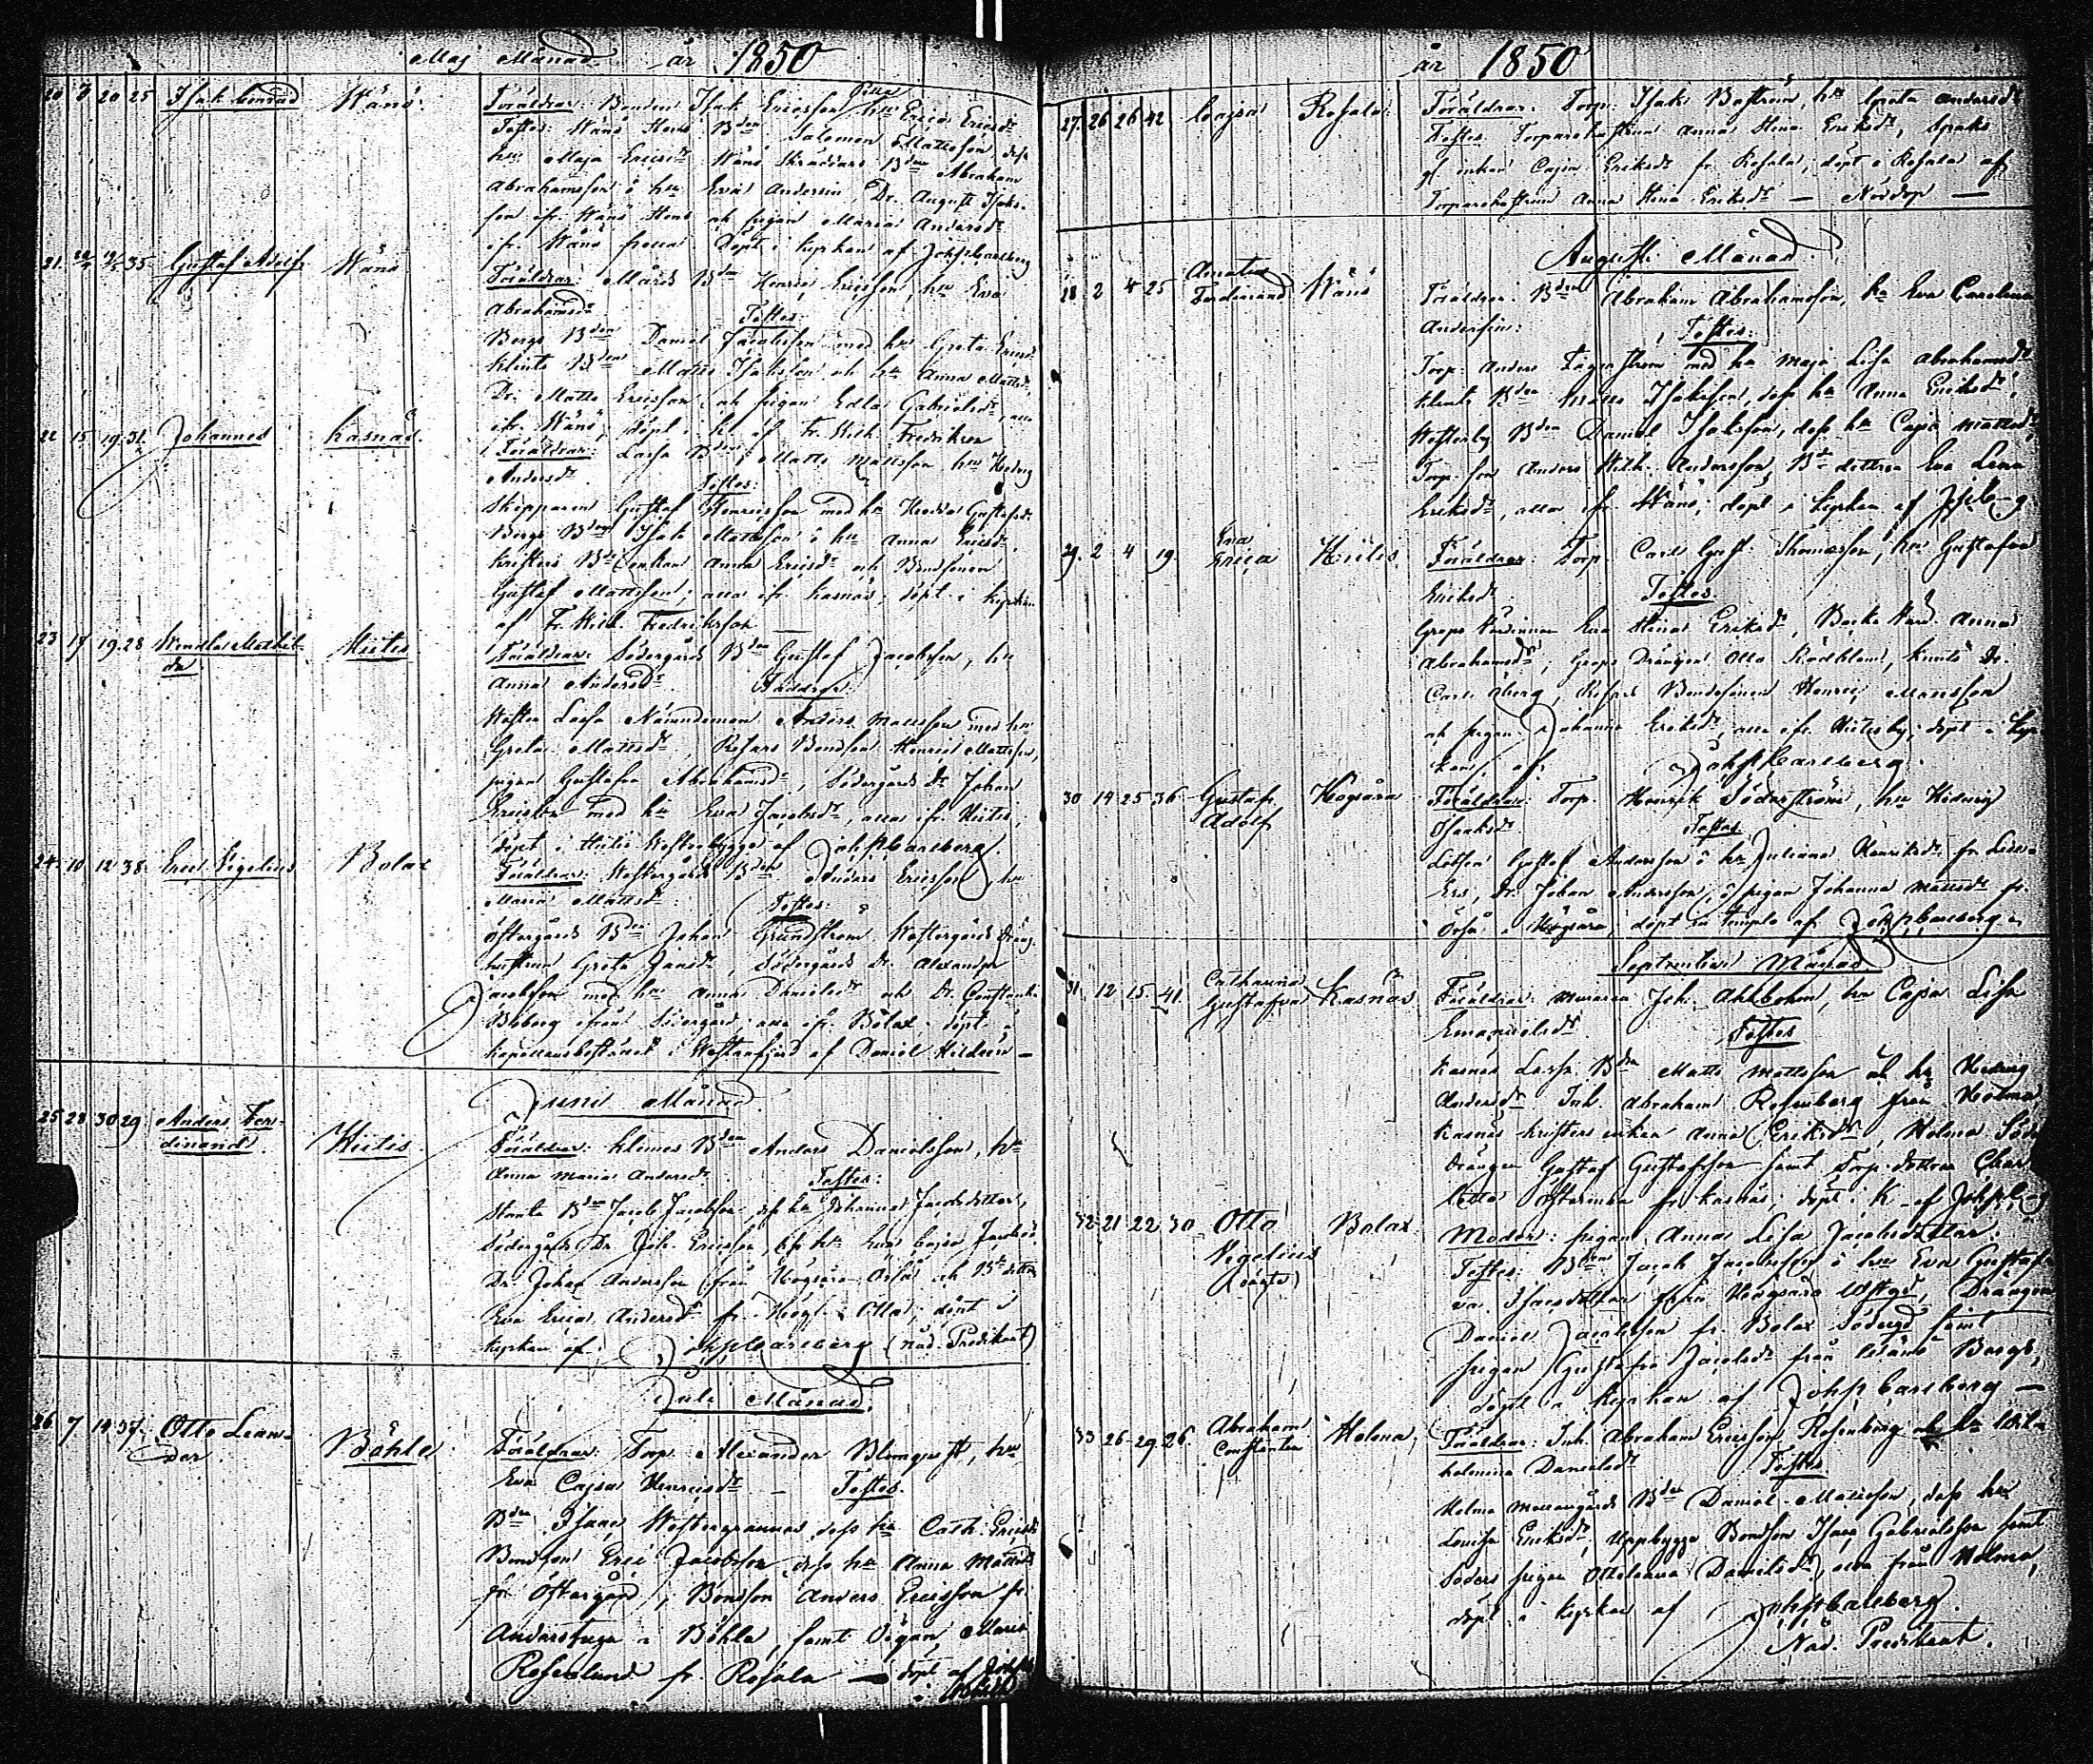 Maj Månad år 1850
20 3 20 25 Isak Conrad Wänö Föräldrar: Bonden Isak Ericsson hu Erica Ericsdr
Testes: Wänö Bden Salomon Mattsson dess
hu Maja Ericsdr Wänö Bden Abraham
Abrahamsson o hu Eva Andersin, Dr. August Isaks-
son ifr. Wänö och pigan Maria Andersdr
ifr. Wänö Döpt i kyrkan af Joh P Carlberg
21. 35 Gustaf Adolf Wänö
Föräldrar: Bden Henric Ericsson, hu Eva
Abrahamsdr Testes:
Bergs Bden Daniel Jacobsson med hu Greta Ericsdr
Klints Bden Matts Isaksson och hu Anna Mattsdr
Dr. Matts Ericsson och pigan Edla Gabrielsdr, alla
ifr. Wänö; döpt i k. af Fr. Wilh Fredrikson
22 15 19. 31. Johannes Kasnäs
Föräldrar: Lassa Bden Matts Mattsson hu Hedvig
Andersdr Testes:
Skepparen Gustaf Henricsson med hu Hedda Gustafsdr
Bergs Bden Isak Mattsson o hu Anna Ericsdr
Kristers Bde Enkan Anna Ericsdr och Bondsonen
Gustaf Mattsson; alla ifr Kasnäs; döpt i kyrkan
af Fr. Wilh Fredriksson
23 17 19. 28 Wendla Mathil-
da Hitis Föräldrar: Södergårds Bden Gustaf Jacobsson, hu
Anna Andersdr Faddrar:
Lassa Nämndeman Anders Mattsson med hu
Greta Mattsdr, Rosars Bondson Henric Mattsson,
pigan Gustafva Abrahamsdr, Södergårds Dr Johan
Ericsson med hu Eva Jacobsdr, alla ifr. Hitis;
döpt i Hitis af Joh P Carlberg.
24. 10 12 38. Eric Vigelius Bolax
Föräldrar: Westergårds Bden Anders Ericsson, hu
Maria Mattsdr. Testes:
Östergårds Bden Johan Grundström, Westergårds Dräng-
hustrun Greta Jansdr, Södergårds dr. Alexander
Jacobsson med hu Anna Danielsdr och Dr. Constantin
ifrån Södergård; alla ifr. Bolax; döpt i
Kapellansbostället i Westanfjerd af Daniel Hildeen
Junii Månad.
25 28 30 29 Anders Fer-
dinand. Hitis.
Föräldrar: Klemes Bden Anders Danielsson, hu
Anna Maria Andersdr Testes:
Bden Jacob Jacobsson, dess hu Johanna Jacobsdotter,
Södergårds Dr. Joh. Ericsson, dess hu Eva Cajsa Jacobsd.
Dr. Johan Andersson från Högsåra Örså och Bde dottren
Eva Erica Andersdr fr. Högs: Olla; döpt i
kyrkan af Joh P Carlberg (Nåd. Predikant)
Julii Månad.
26 7 14 37. Otto Lean-
der. Böhle
Föräldrar: Torp. Alexander Blomqvist, hu
Eva Cajsa Henricsdr Testes.
Bden Isaac Westergrannas, dess hu Cath. Ericsdr
Bondson Eric Jacobsson dess hu Anna Mattsdr
fr. Östergård; Bondson Anders Ericsson fr.
Andersstuga i Böhle, samt Pigan Maria
Roslund fr. Rosala — döpt af Joh P
Carlberg
år 1850
27. 26 26 42 Cajsa Rosala. Föräldrar: Torp: Isak Boström, hu Greta Andersdr
Testes: Torparehustrun Anna Stina Eriksdr,
gl enkan Cajsa Eriksdr fr Rosala; döpt i Rosala af
Torparehustrun Anna Stina Eriksdr — Nöddop —
Augusti Månad.
28 2 4 25 Amatus
Ferdinand Wänö
Föräldrar. Bden Abraham Abrahamsson, hu Eva Carolina
Andersin: Testes:
Torp: Anders Fagerström med hu Maja Lisa Abrahamsdr
Klints Bden Matts Isaksson, dess hu Anna Eriksdr,
Westerby Bden Daniel Isaksson, dess hu Cajsa Mattsdr,
Torp: son Anders Wilh. Andersson, Bde dottren Eva Lena
Eriksdr, alla fr. Wänö; döpt i kyrkan af J P C-g
29. 2 4 19. Eva
Erica Hitis Föräldrar: Torp. Carl Gust. Thomasson, hu Gustafva
Eriksdr. Testes.
Greps Värdinnan Eva Stina Eriksdr, Backa Hust. Anna
Abrahamsdr, Greps Drängen Otto Rödblom, Kimito Dr.
Carl Åberg, Rosars Bondesonen Henric Mattsson
och pigan Johanna Eriksdr, alla ifr. Hitisby; döpt i kyr-
kan, af Joh P Carlberg.
30 14 25 36 Gustaf
Adolf Högsåra
Föräldrar: Torp. Henrik Söderström, hu Hedvig
Isaaksdr. Testes
Lotsen Gustaf Andersson o hu Juliana Henriksdr fr.
Dr. Johan Andersson, o pigan Johanna Mattsdr fr.
Örså i Högsåra, döpt in templo af Joh P Carlberg.
September Månad
31. 12 15 41. Catharina
Gustafva Kasnäs Föräldrar: Muraren Joh. Ahlbom, hu Cajsa Lisa
Emanuelsdr Testes
Kasnäs Lassa Bden Matts Mattsson och hu Hedvig
Andersdr Inh. Abraham Rosenberg från Holma
Kasnäs Kristers enkan Anna Eriksdr, Holma Söder
drängen Gustaf Gustafsson samt Torp. dottren Char-
lotta fr Kasnäs; döpt i K. af Joh P C-g
32 21 22 30 Otto
Vegelius
(oägta) Bolax. Moder: pigan Anna Lisa Jacobsdotter.
Testes: Bden Jacob Jacobsson o hu Eva Gustaf-
va Isacsdotter från Högsåra Westgd, Drängen
Daniel Jacobsson fr. Bolax Södergd samt
pigan Gustafva Jacobsdr från Wänö Bergs,
döpt i kyrkan af Joh P Carlberg —
33 26 29 26 Abraham
Constantin Holma, Föräldrar: Inh. Abraham Ericsson Rosenberg och hu Wil-
helmina Danielsdr Testes
Holma Mellangårds Bden Daniel Mattsson, dess hu
Lovisa Eriksdr, Uppbygge Bondson Isaac Gabrielsson samt
Söders pigan Ottiliana Danielsdr, alla från Holma,
döpt i kyrkan af Joh P Carlberg.
Nåd. Predikant.